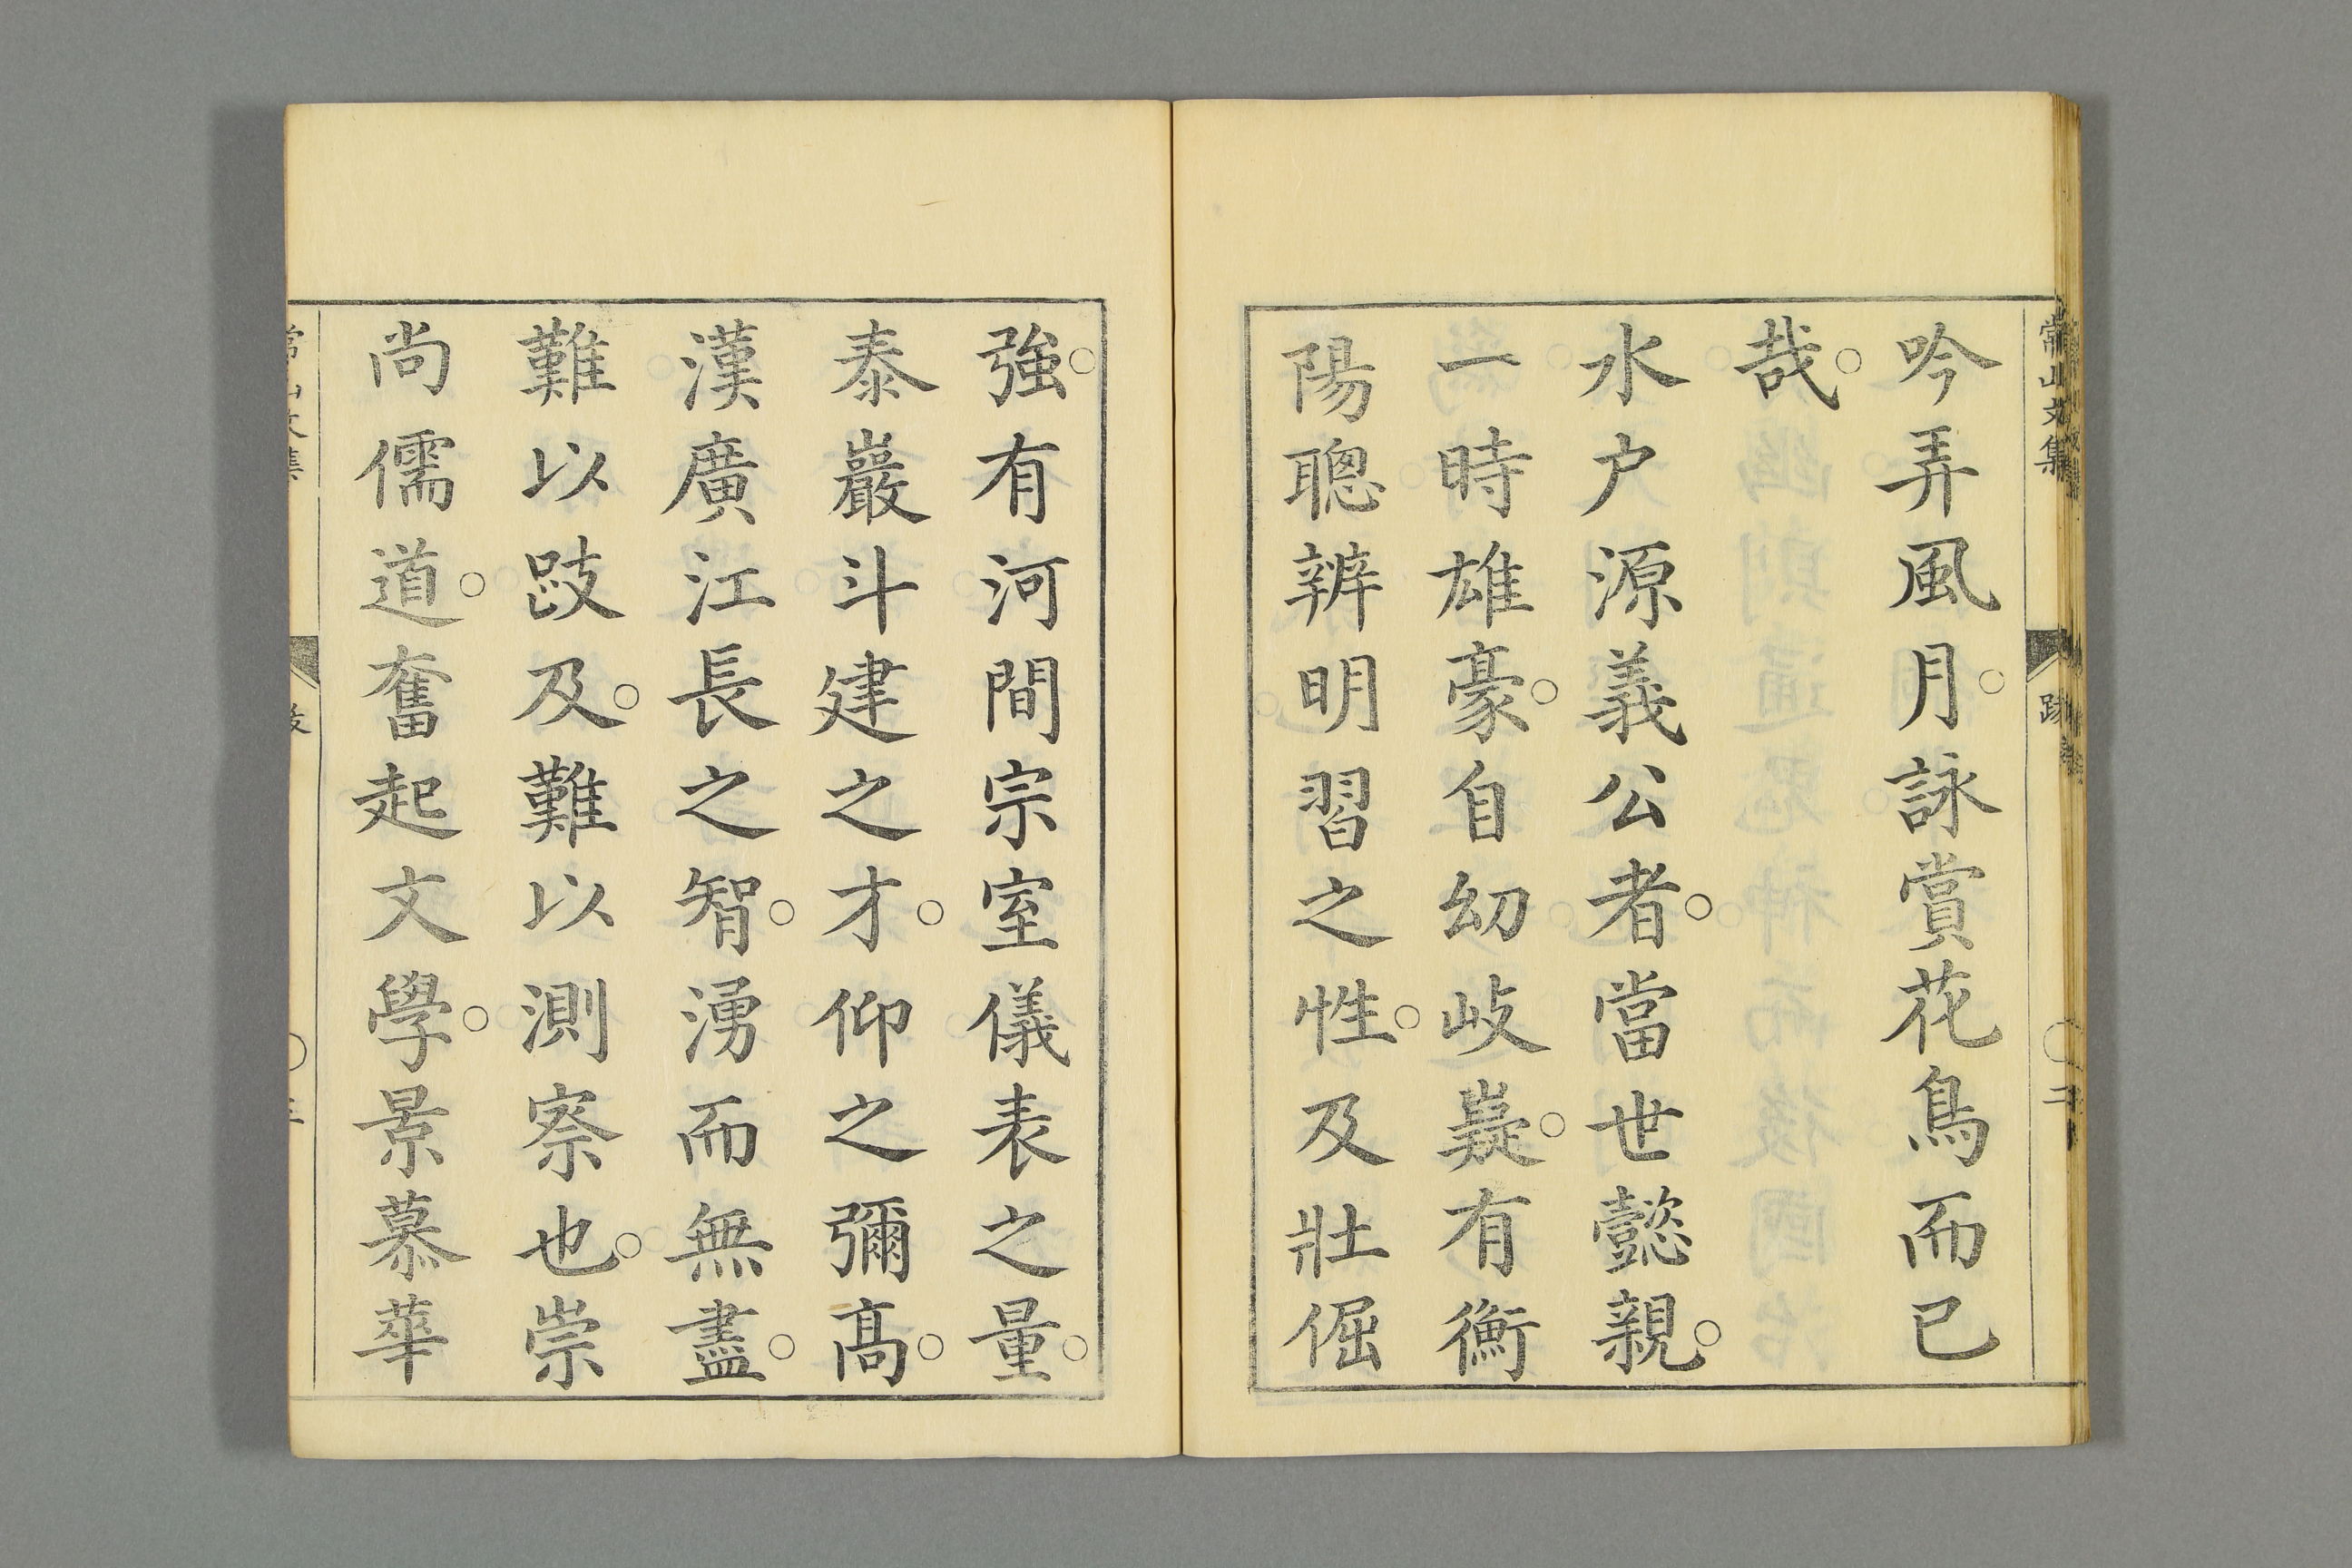 常山文集
跋
二
吟弄風月。詠賞花鳥而已
哉。
水户源義公者。當世懿親。
一時雄豪。自幼岐嶷。有衡
陽聰辨明習之性。及壯倔
強。有河間宗室儀表之量。
泰巖斗建之才。仰之彌高。
漢廣江長之智。湧而無盡。
難以跂及。難以測察也。崇
尚儒道。奮起文學。景慕華